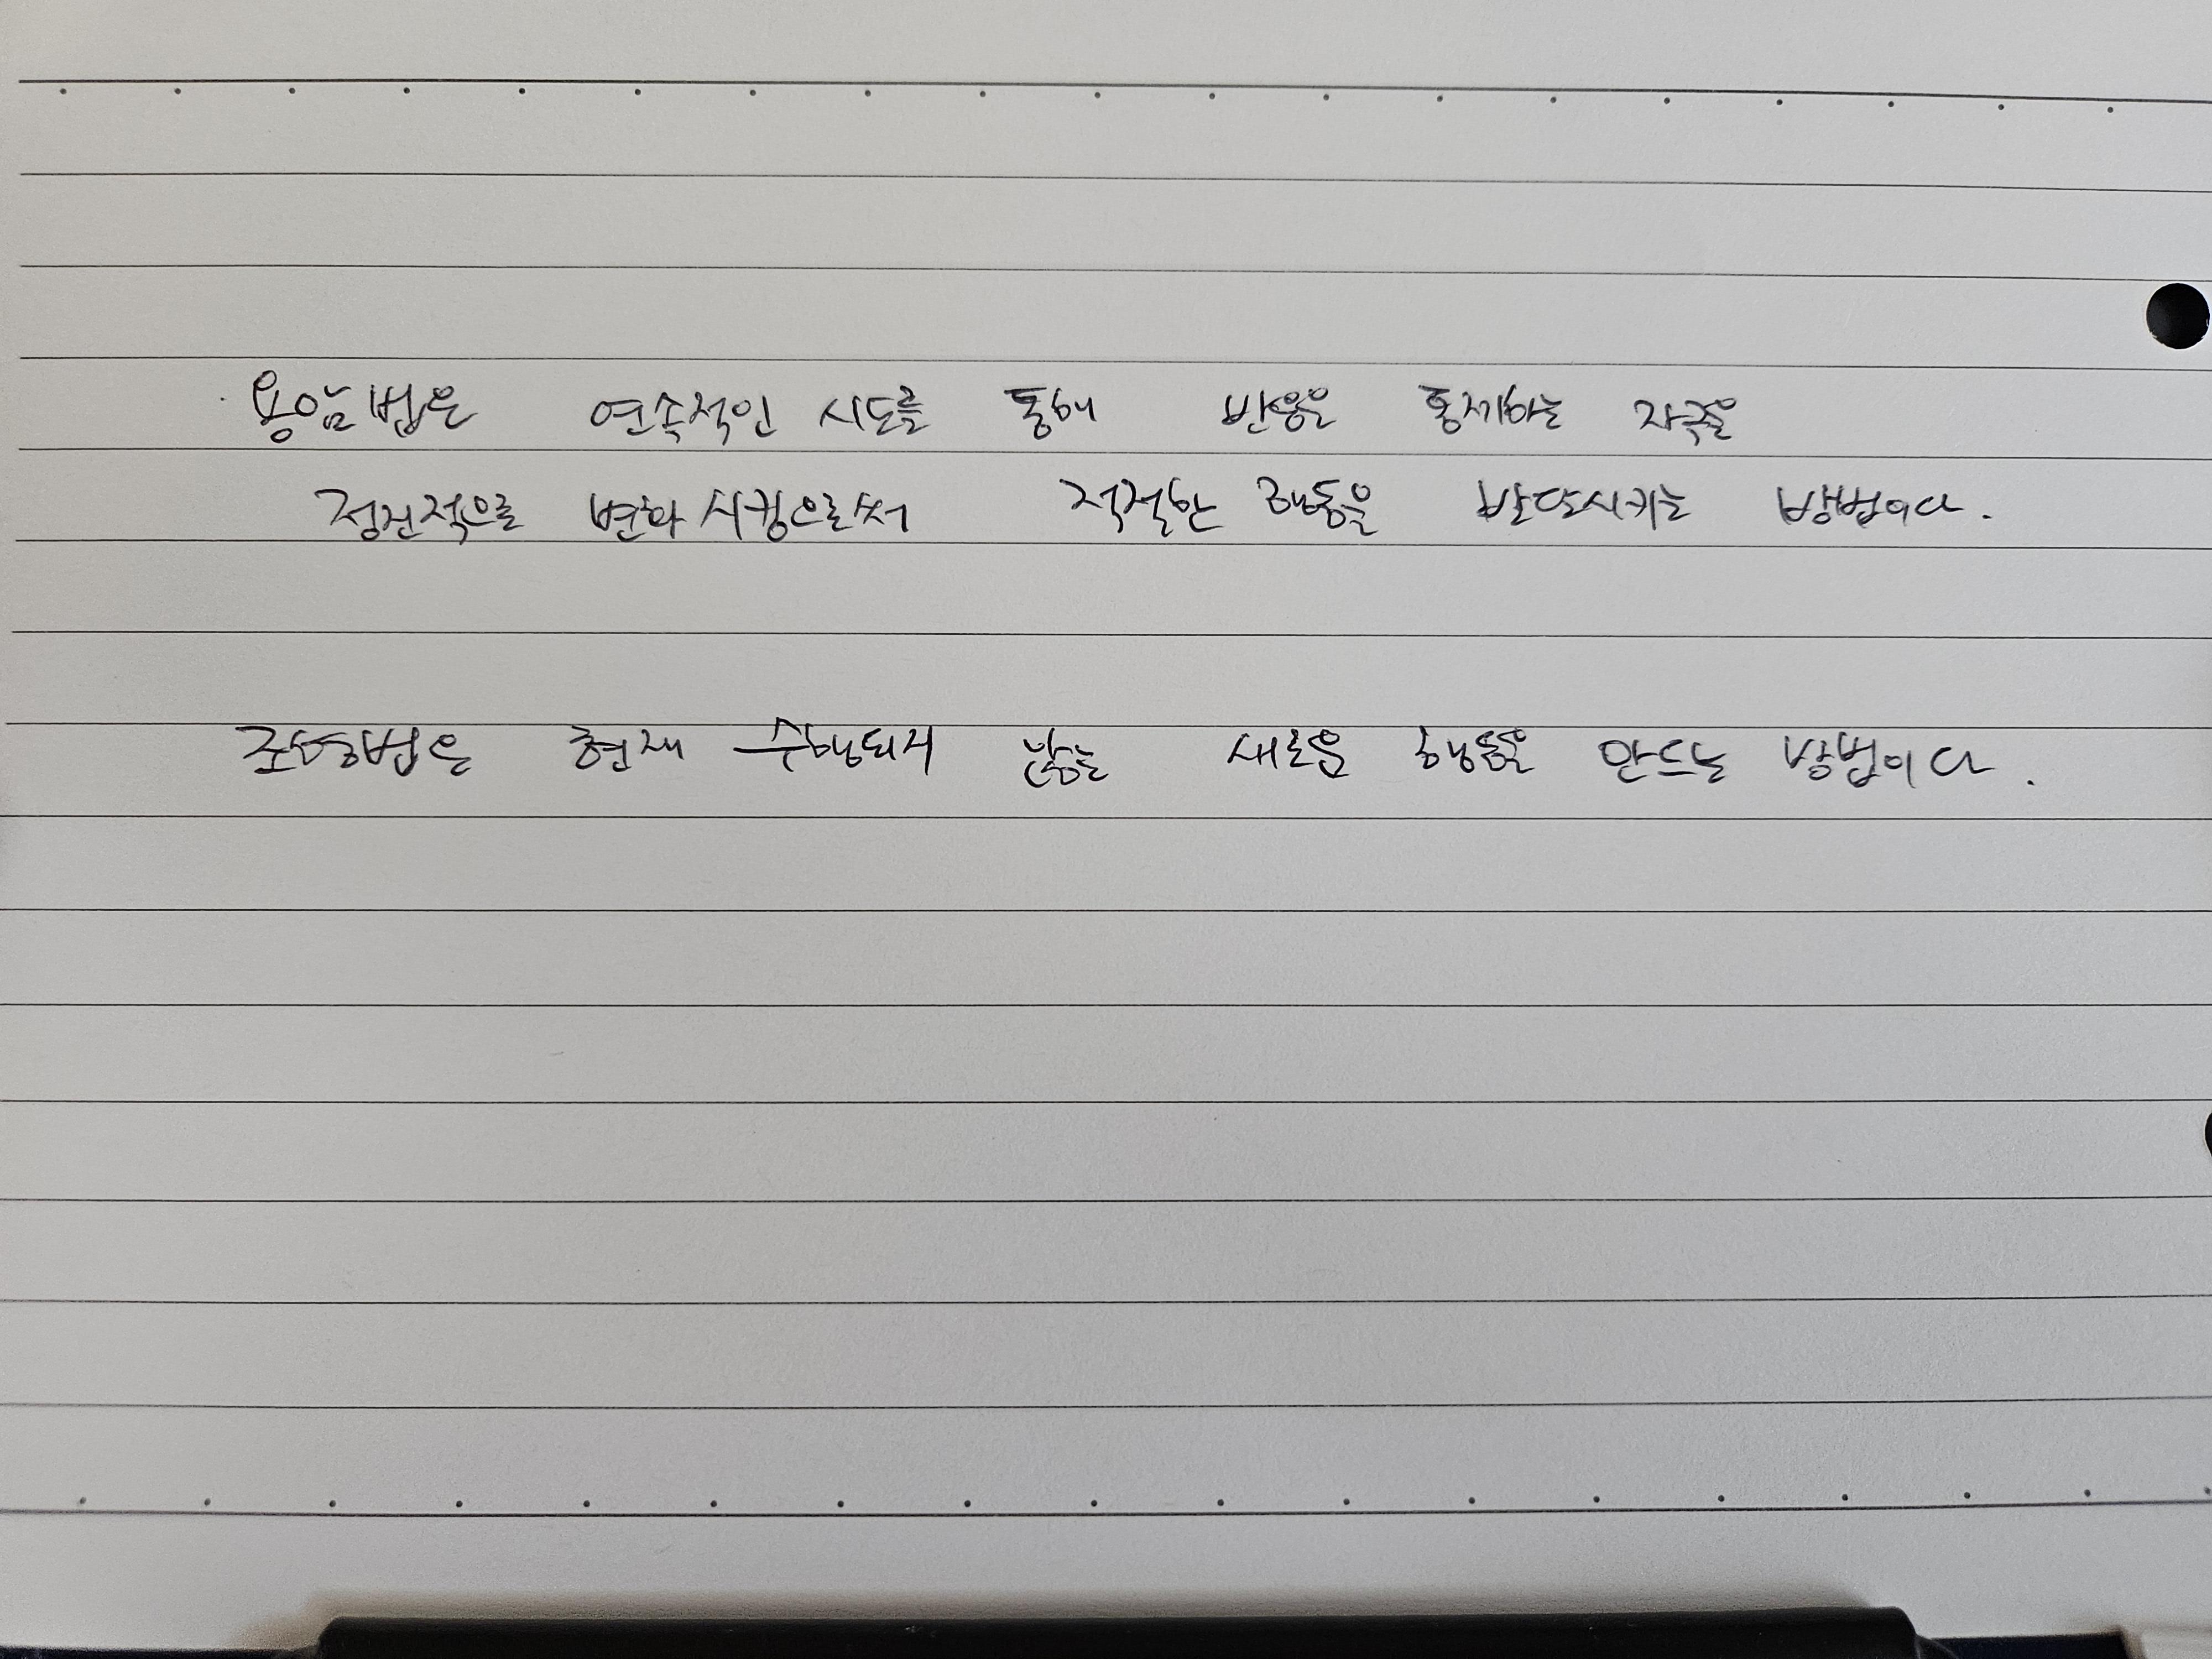 용암법은 연속적인 시도를 통해 반응을 통제하는 자극을
점진적으로 변화시킴으로써 적절한 행동을 발달시키는 방법이다.
조형법은 현재 수행되지 않는 새로운 행동을 만드는 방법이다.